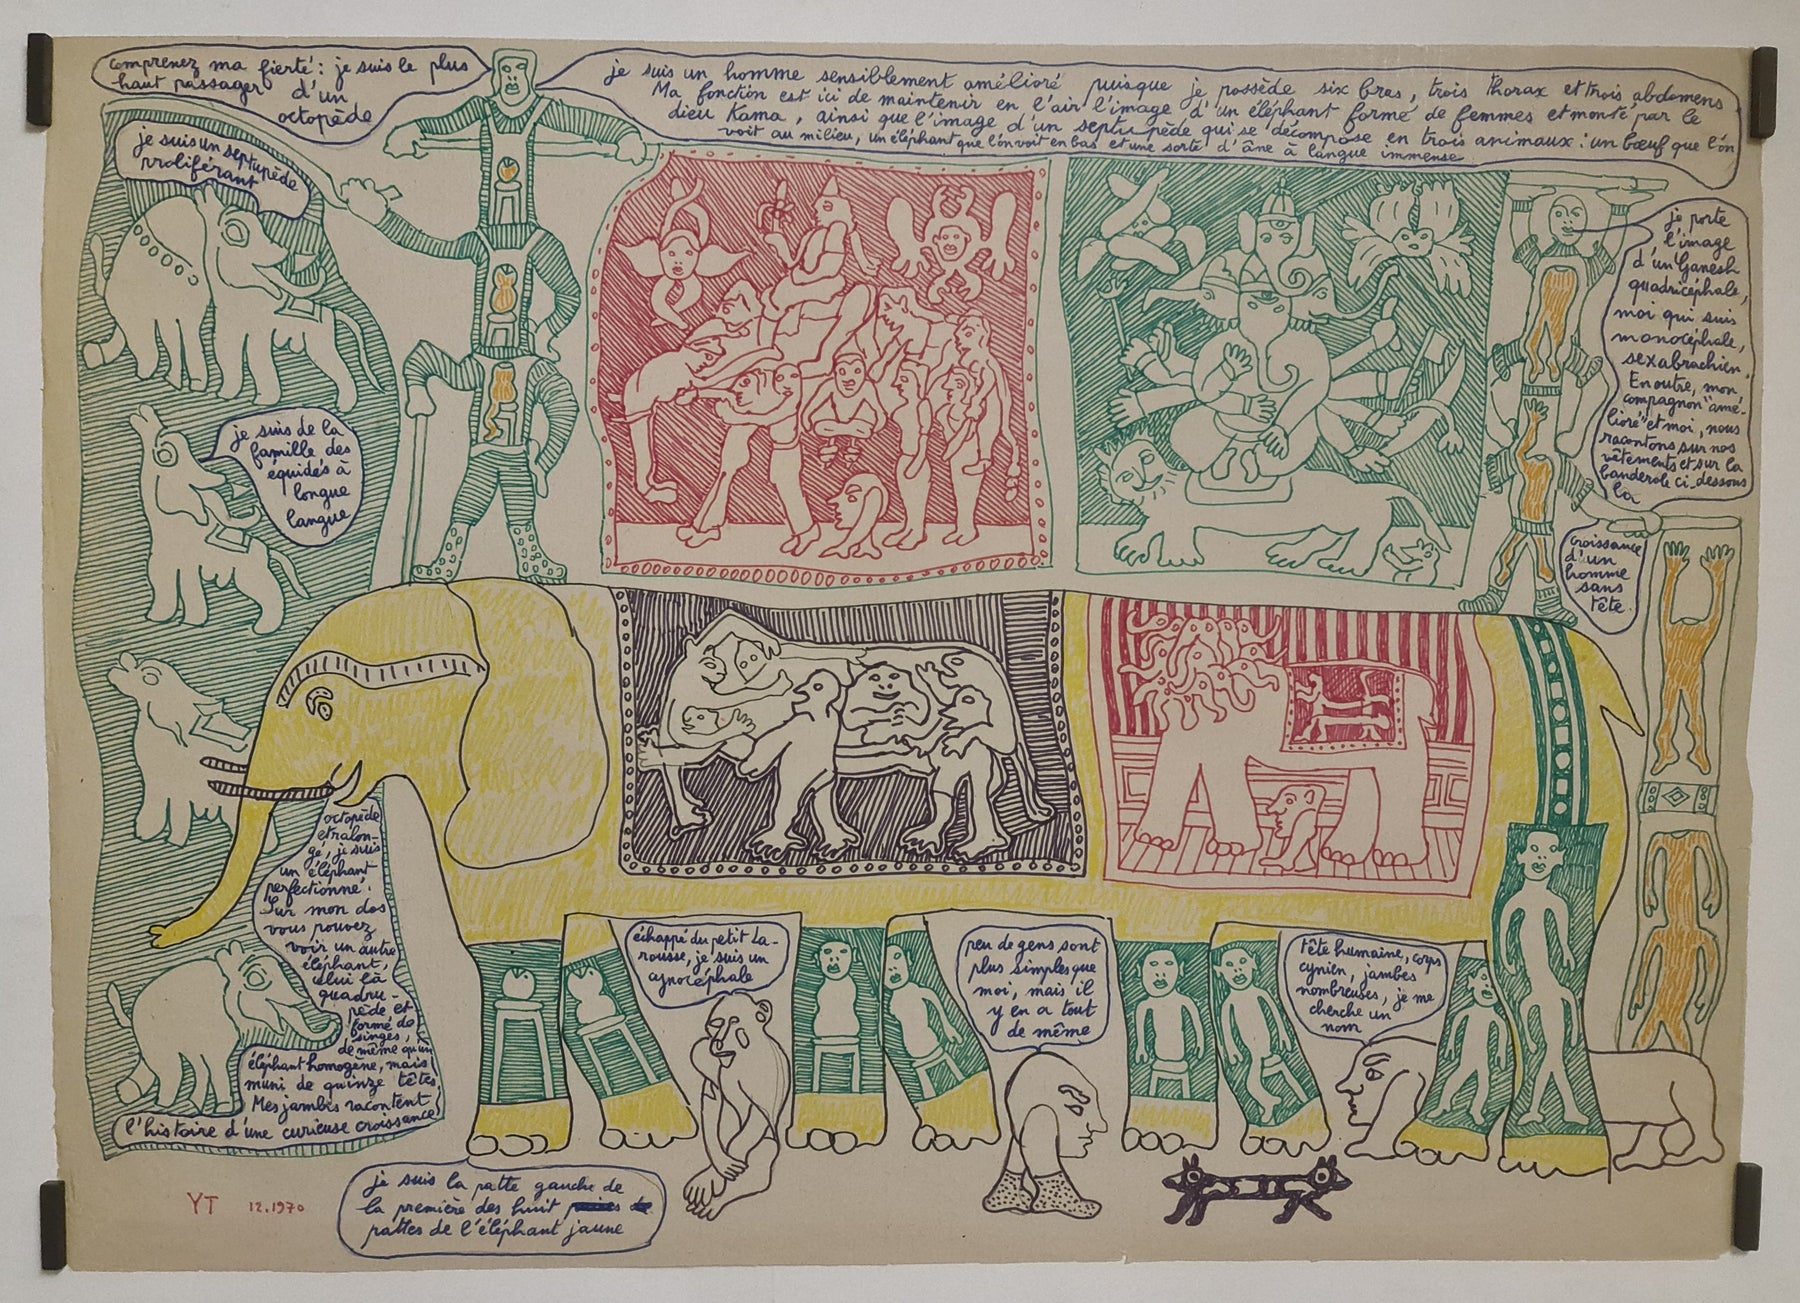 comprenez ma fierté : je suis le plus
haut passager d'un
octopède
je suis un homme sensiblement amélioré puisque je possède six bras, trois thorax et trois abdomens
Ma fonction est ici de maintenir en l'air l'image d'un éléphant formé de femmes et monté par le
dieu Kama, ainsi que l'image d'un septupède qui se décompose en trois animaux : un bœuf que l'on
voit au milieu, un éléphant que l'on voit en bas et une sorte d'âne à langue immense
je suis un septupède
proliférant
je porte
l'image
d'un Ganesh
quadricéphale,
moi qui suis
monocéphale,
sexabrachien.
En outre, mon
compagnon "amé-
lioré" et moi, nous
racontons sur nos
vêtements et sur la
banderole ci-dessous
la
croissance
d'un
homme
sans
tête.
je suis de la
famille des
équidés à
longue
langue
octopède
et ralon-
gé, je suis
un éléphant
perfectionné.
Sur mon dos
vous pouvez
voir un autre
éléphant,
celui là
quadru-
pède et
formé de
singes,
de même qu'un
éléphant homogène, mais
muni de quinze têtes.
Mes jambes racontent
l'histoire d'une curieuse croissance
échappé du petit La-
rousse, je suis un
cynocéphale
peu de gens sont
plus simples que
moi, mais il
y en a tout
de même
tête humaine, corps
cynien, jambes
nombreuses, je me
cherche un
nom
je suis la patte gauche de
la première des huit
pattes de l'éléphant jaune
YT 12.1970